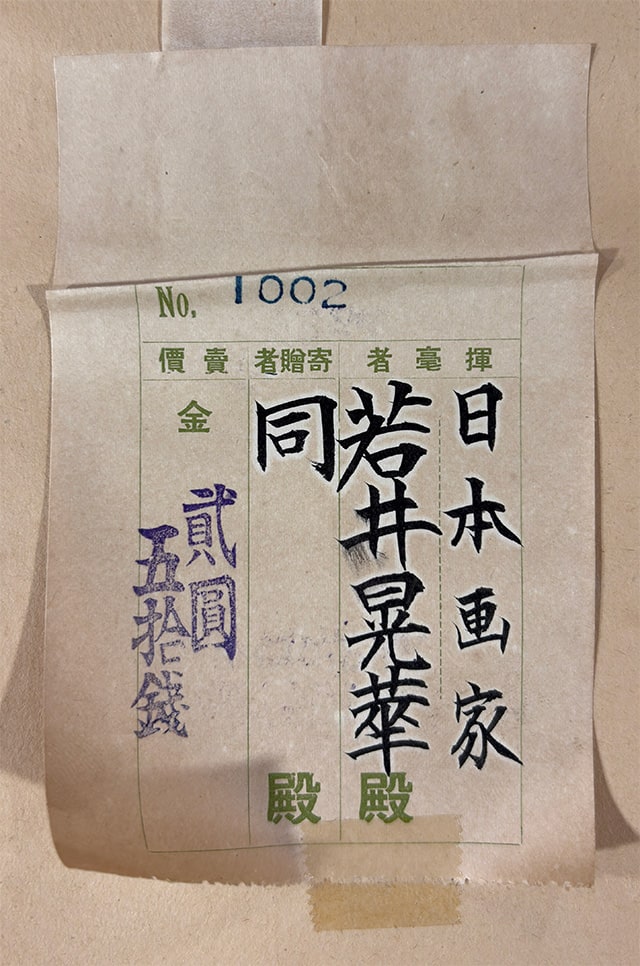 No. 1002
揮毫者
寄贈者
賣價
日本画家
若井晃華殿
同殿
金
貳圓
五拾錢